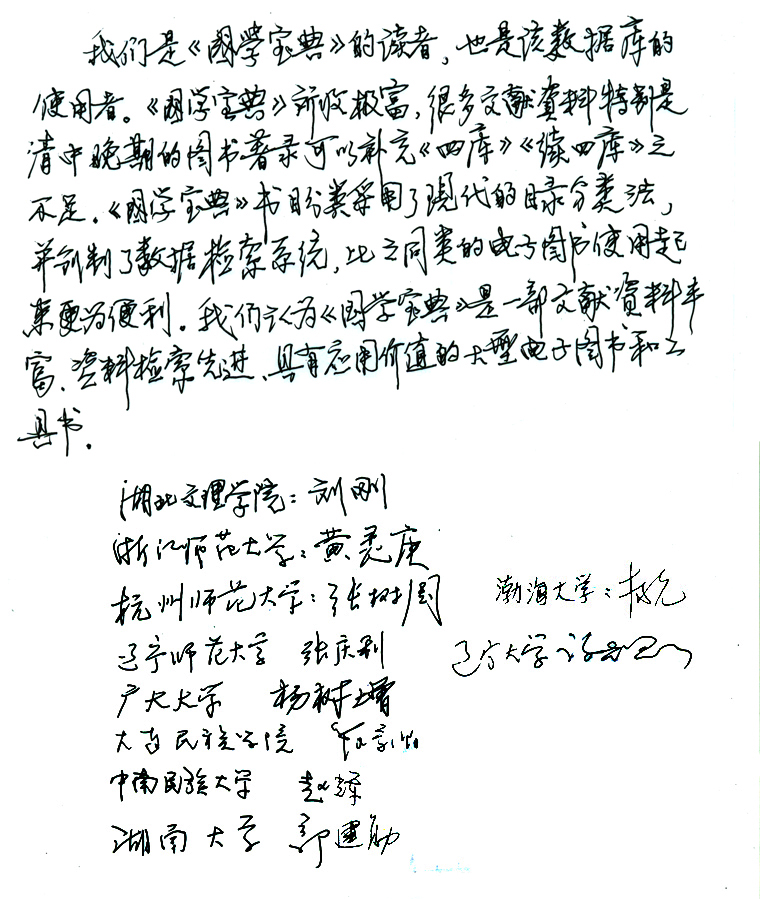 我们是《國学宝典》的读者，也是该数据库的
使用者。《国学宝典》所收极富，很多文献资料特别是
清中晚期的图书著录可以补充《四库》《续四库》之
不足。《國学宝典》书目分类采用了现代的目录分类法，
并创制了数据检索系统，比之同类的电子图书使用起
来更为便利。我们认为《国学宝典》是一部文献资料丰
富、资料检索先进、具有应用价值的大型电子图书和工
具书。
湖北文理学院：刘刚
浙江师范大学：黄灵庚
杭州师范大学：张树国
渤海大学：
辽宁师范大学 张庆利
辽宁大学
广大大学 杨树增
大连民族学院
中南民族大学 赵辉
湖南大学 郭建勋